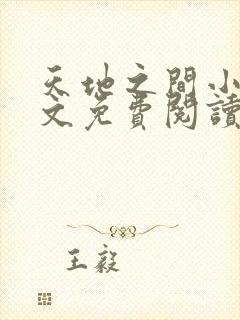 天地之間小
文免費閱讀
王毅